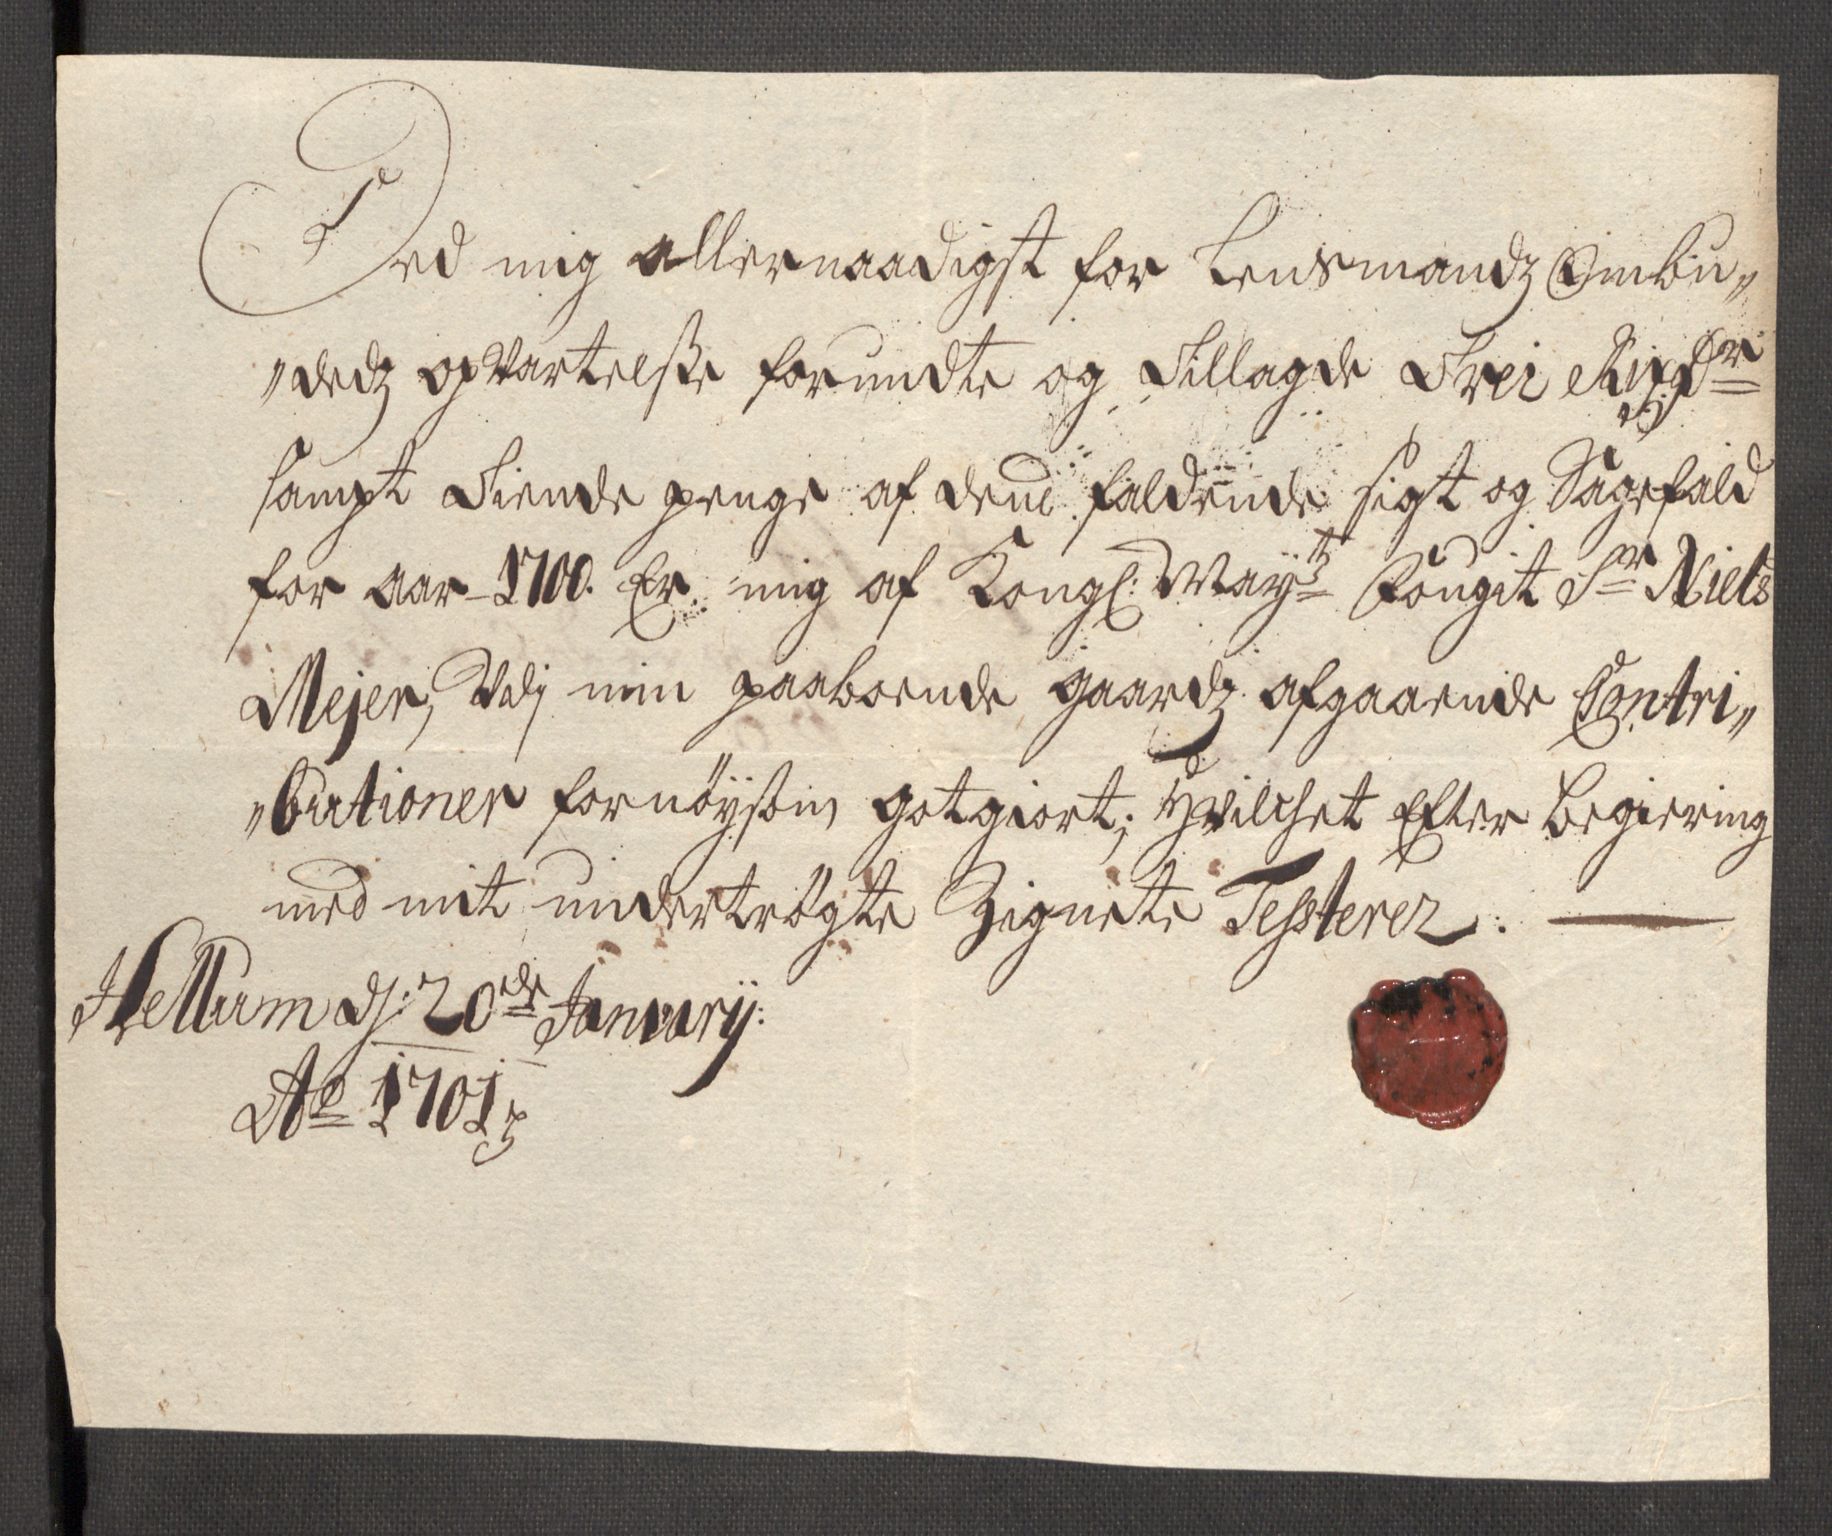 Ded mig allernaadigst for Lensmandz Ombu„
„dedz opVartelsse forundte og Tillagde Trei Rixdr
sampt Tiende penge af dend faldende sigt og Sagefald
for aar 1700. Er mig af Kongl: Maytz Fougit Sr Niels
Mejer, Vdj min paaboende gaardz afgaaende Contri„
„butioner fornöysom gotgiort; Hvilchet Efter begiering
med mit undertrögte Zignete Tessterer.
Hellum dj: 20de January:
Ao 1701